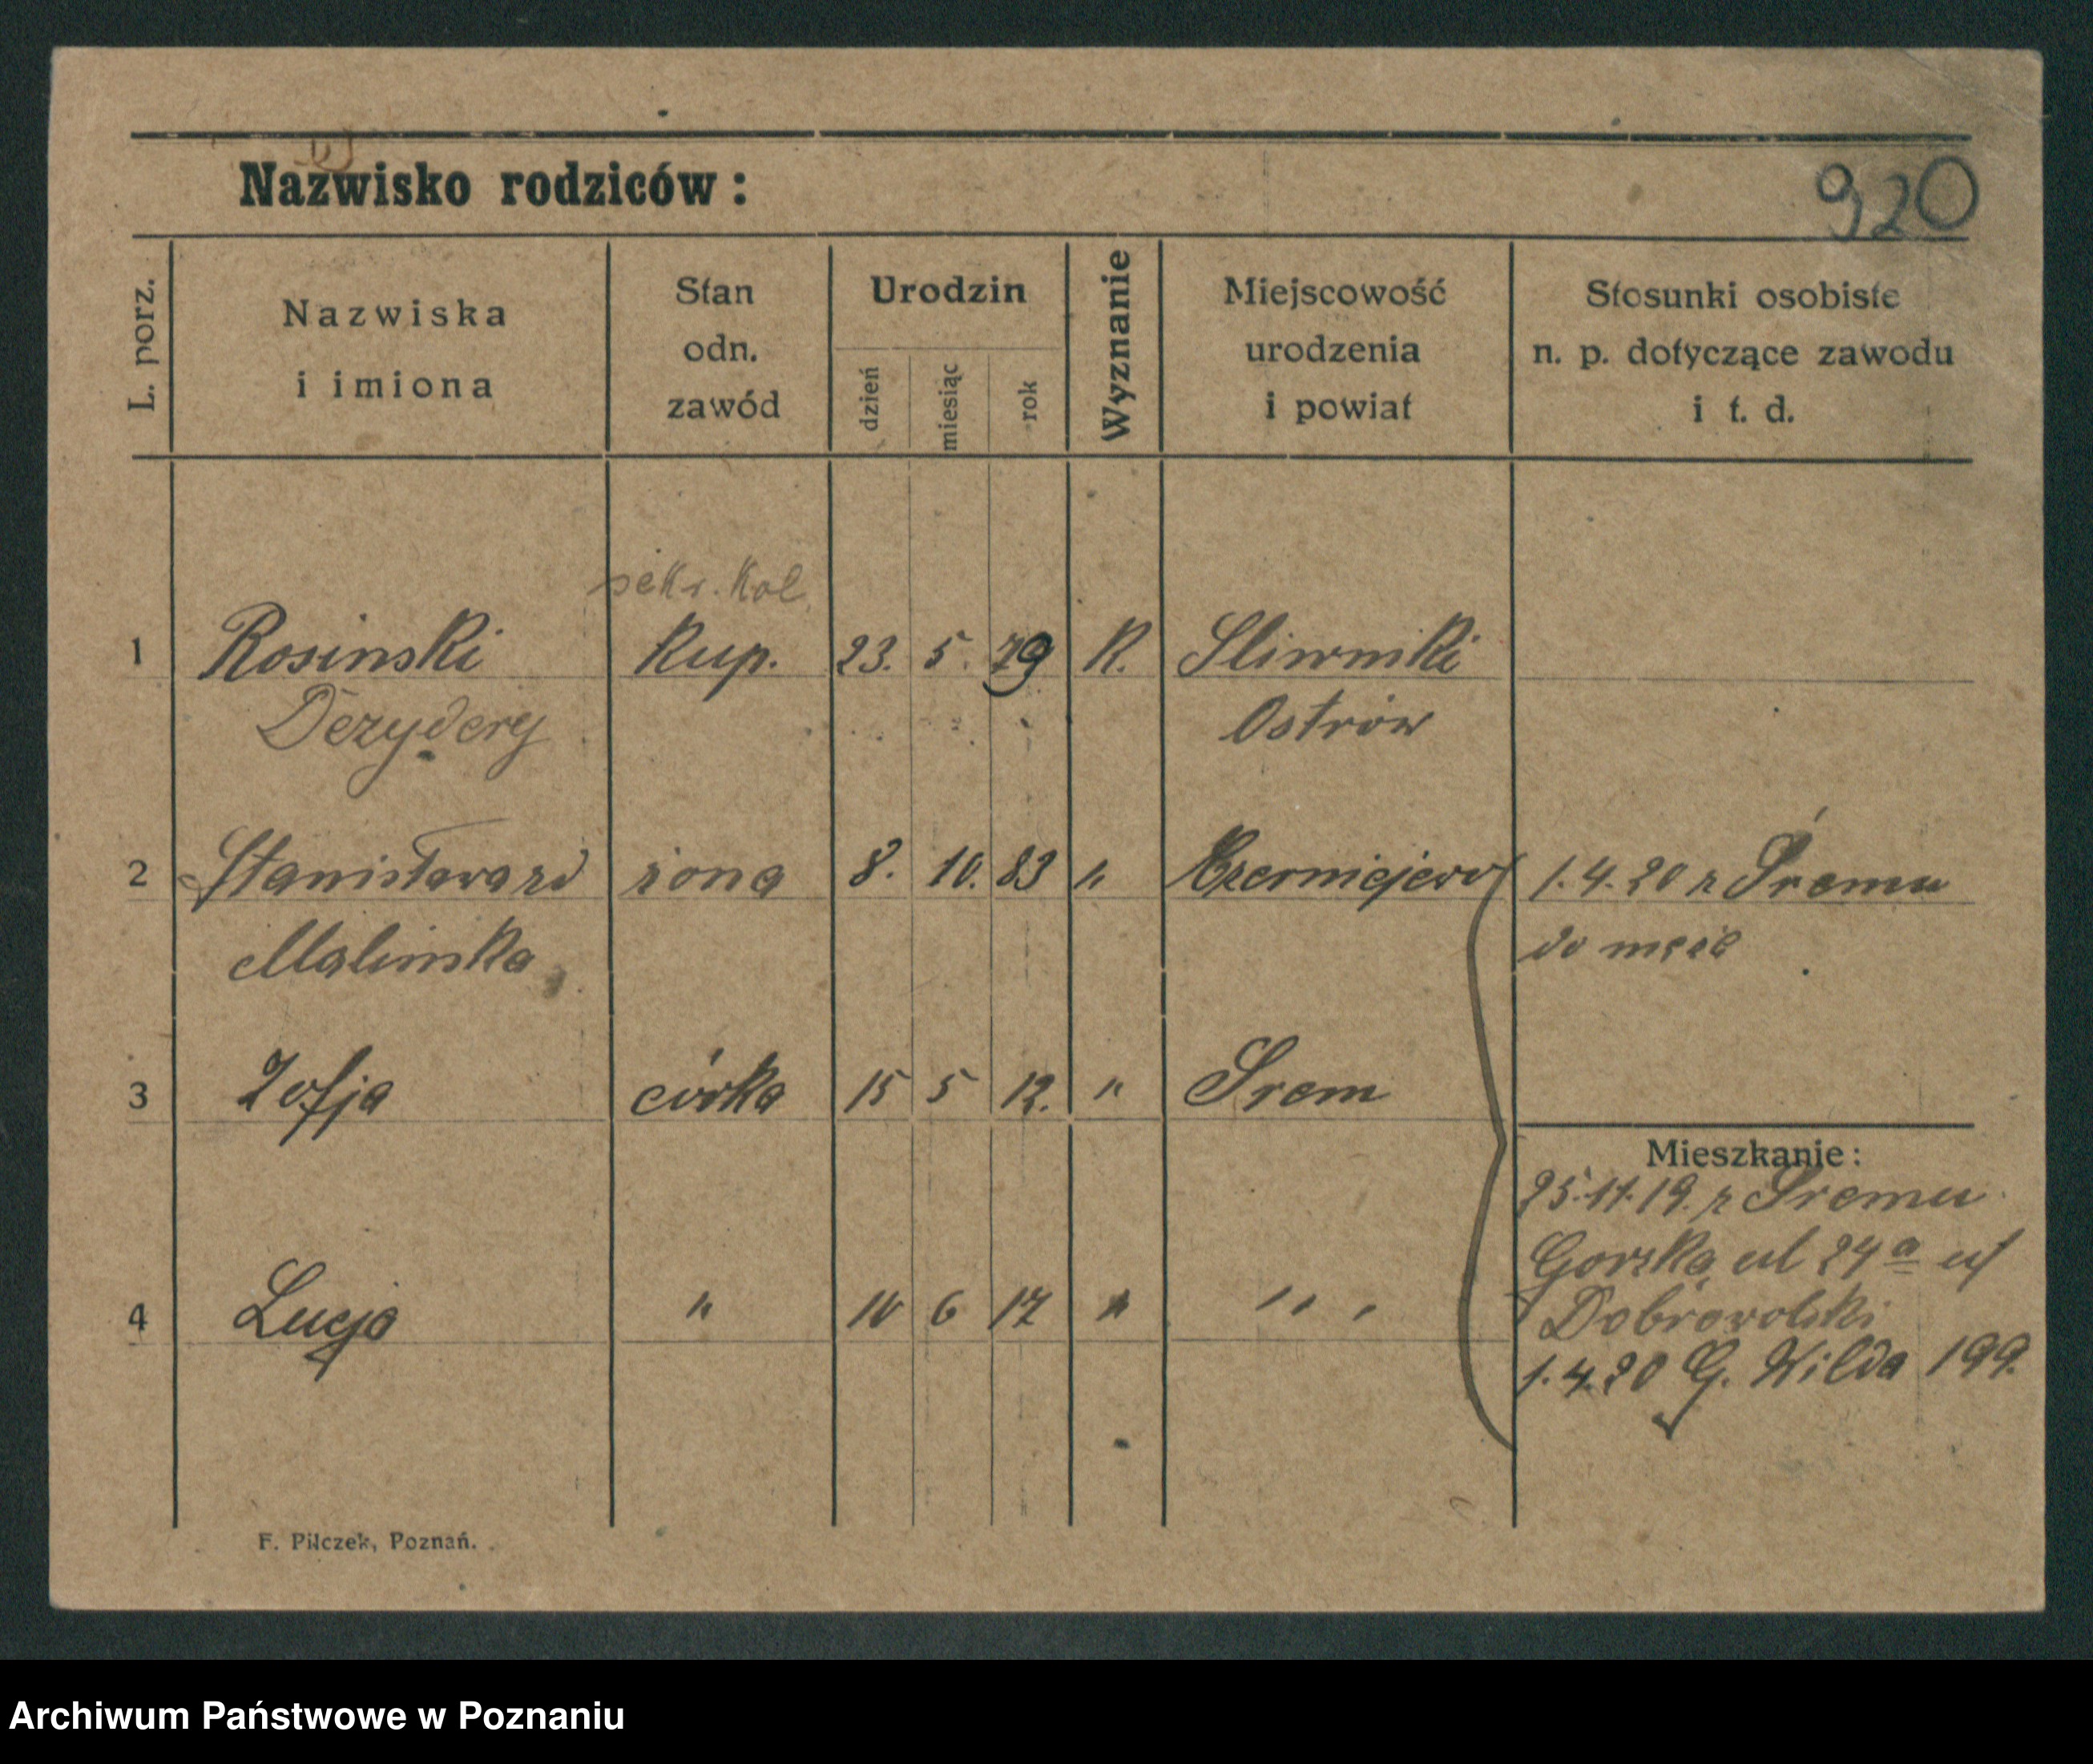 Nazwisko rodziców:
920
L. porz.
Nazwiska
i imiona
Stan
odn.
zawód
Urodzin
dzień
miesiąc
rok
Wyznanie
Miejscowość
urodzenia
i powiat
Stosunki osobiste
n. p. dotyczące zawodu
i t. d.
sekr. Kol.
1 Rosinski Kup. 23. 5. 79 K. Sliwniki
Dezydery Ostrów
2 Stanisława zd żona 8. 10. 83 " Czerniejewo 1.4.20 z Śremu
Malinska do męża
3 Zofja córka 15 5 12. " Srem
Mieszkanie:
25.11.19. z Sremu
Gorska ul 24a uf
4 Łucja " 10 6 17 " " "
Dobrowolski
1.4.20 G. Wilda 199.
F. Pilczek, Poznań.
Archiwum Państwowe w Poznaniu